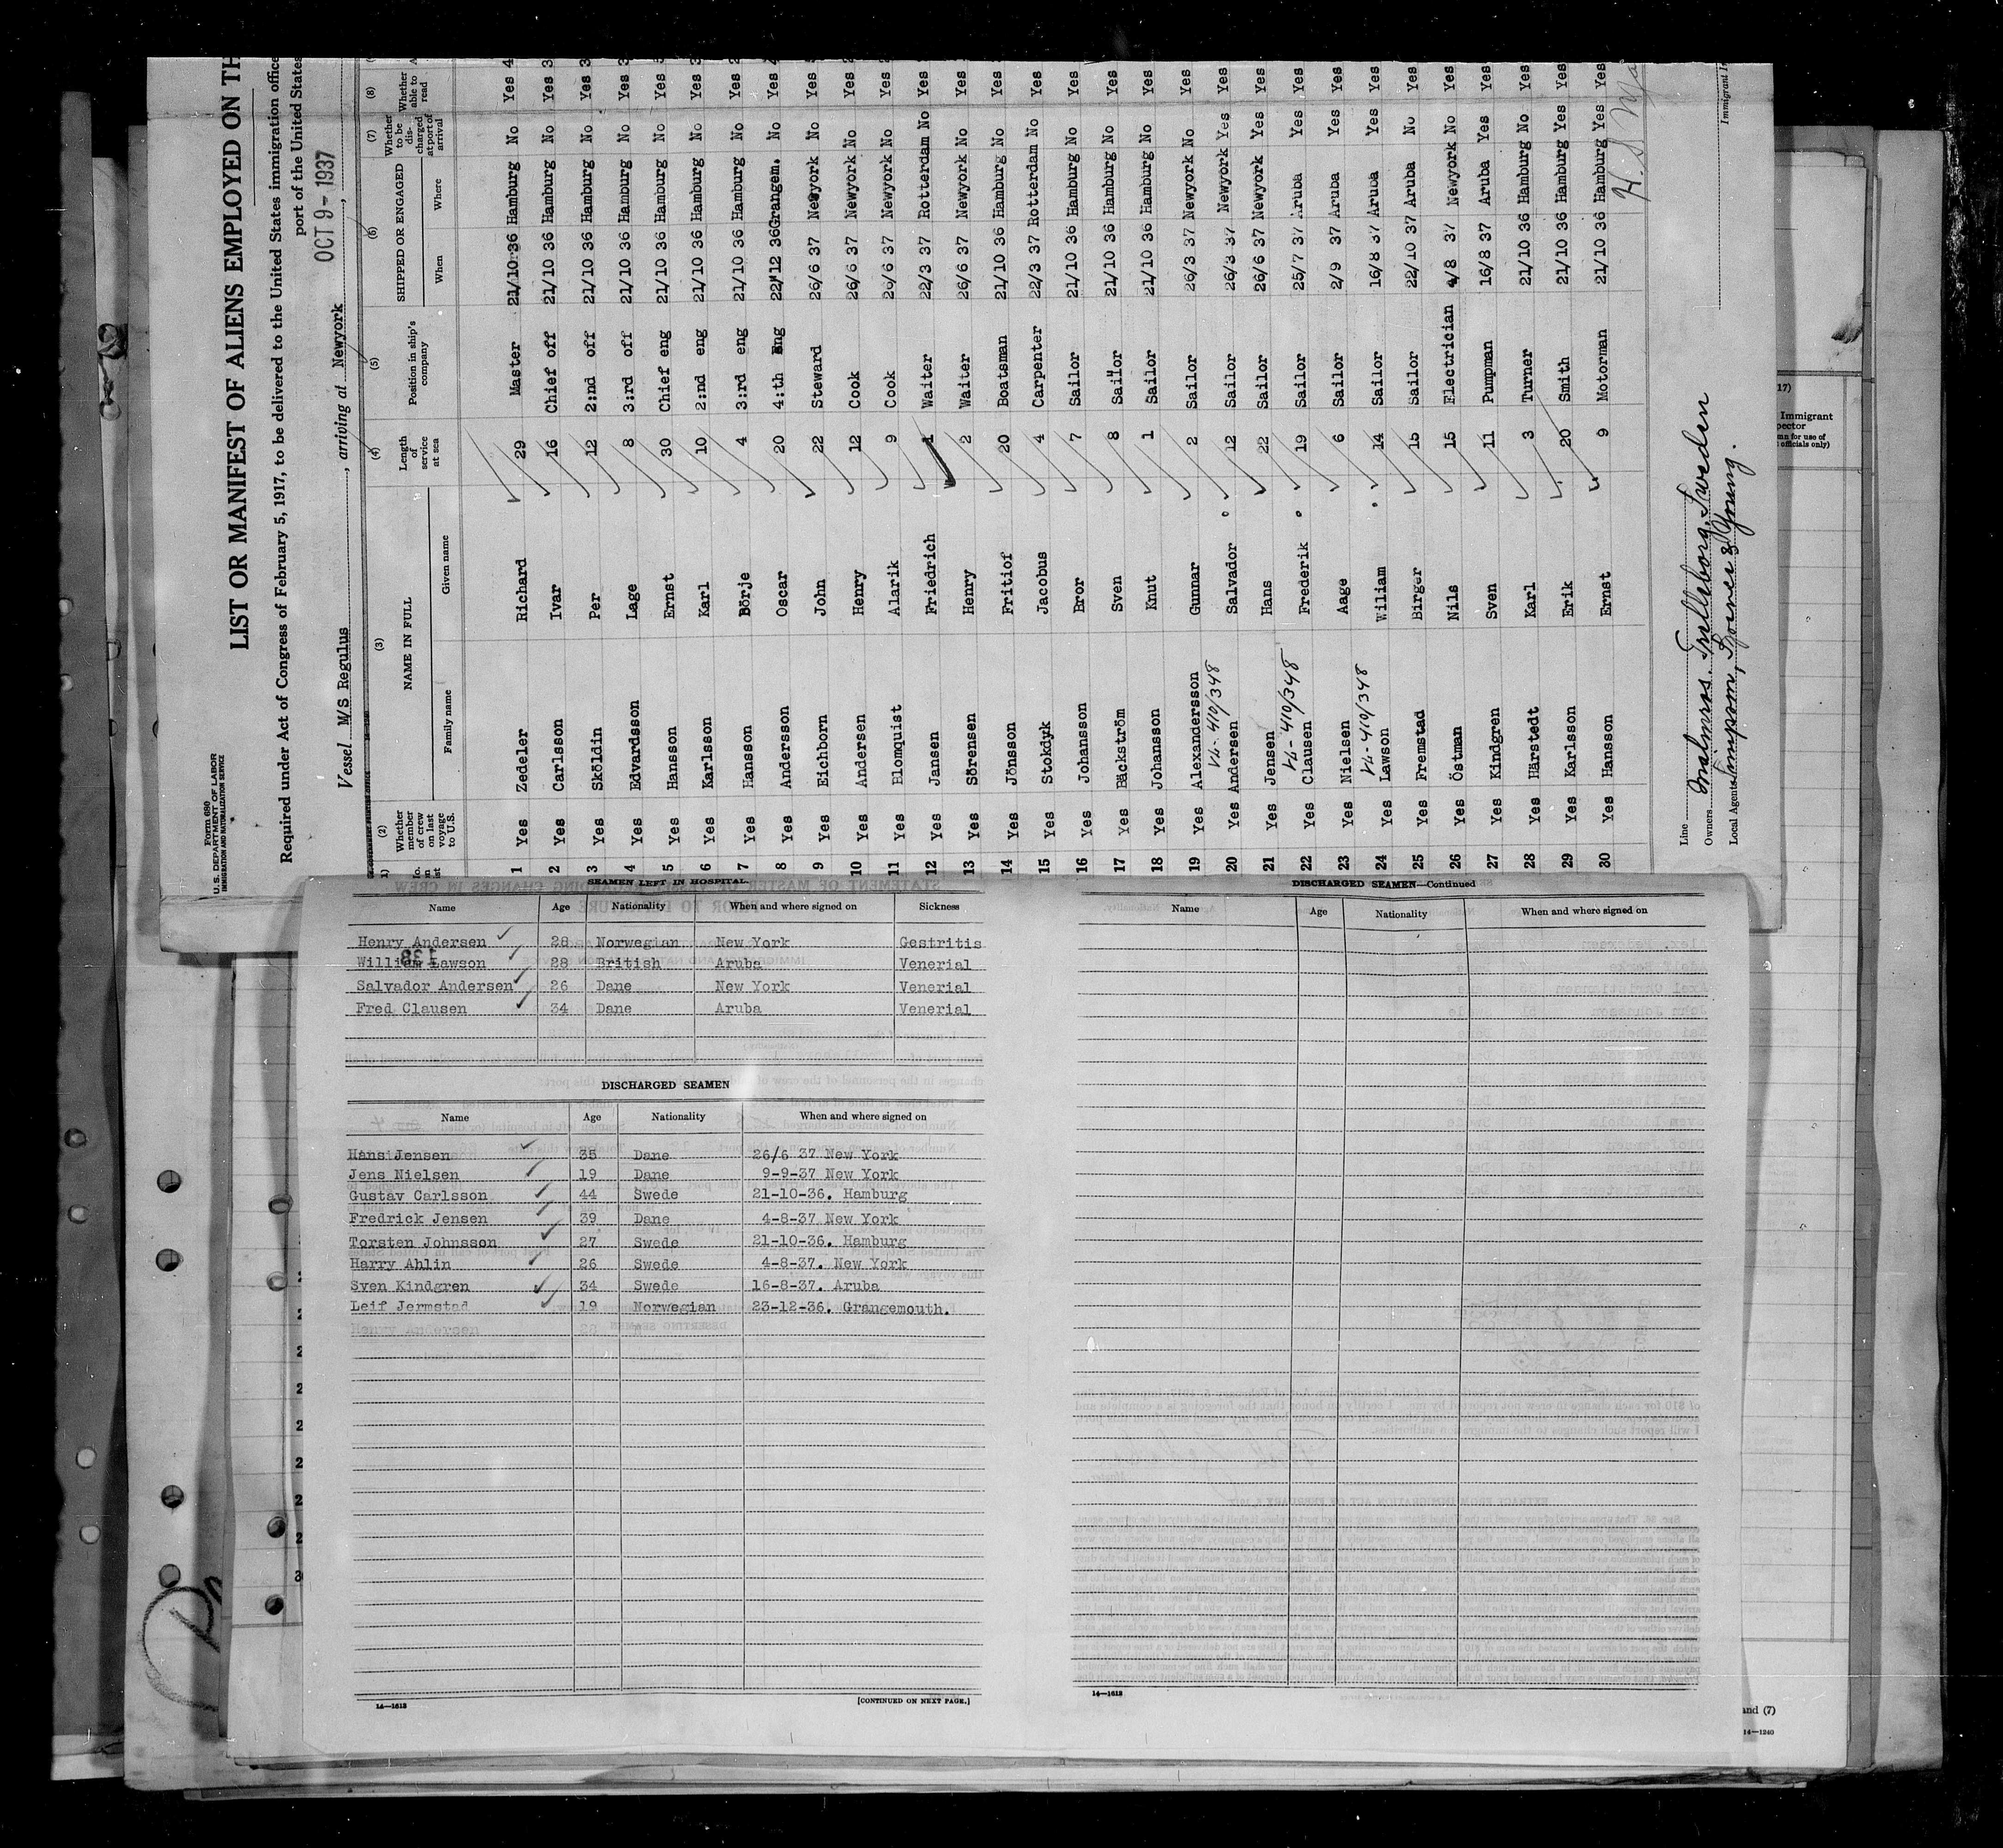 Form 680
U. S. DEPARTMENT OF LABOR
IMMIGRATION AND NATURALIZATION SERVICE
LIST OR MANIFEST OF ALIENS EMPLOYED ON TH
Required under Act of Congress of February 5, 1917, to be delivered to the United States immigration office
port of the United States
Vessel M/S Regulus, arriving at Newyork, OCT 9 - 1937
(2) (3) (4) (5) (6) (7) (8)
Whether member of crew on last voyage to U.S. NAME IN FULL Length of service at sea Position in ship's company SHIPPED OR ENGAGED Whether to be discharged at port of arrival Whether able to read
Family name Given name When Where
1 Yes Zedeler Richard 29 Master 21/10 36 Hamburg No Yes 4
2 Yes Carlsson Ivar 16 Chief off 21/10 36 Hamburg No Yes 3
3 Yes Sköldin Per 12 2:nd off 21/10 36 Hamburg No Yes 3
4 Yes Edvardsson Lage 8 3:rd off 21/10 36 Hamburg No Yes 3
5 Yes Hansson Ernst 30 Chief eng 21/10 36 Hamburg No Yes
6 Yes Karlsson Karl 10 2:nd eng 21/10 36 Hamburg No Yes 3
7 Yes Hansson Börje 4 3:rd eng 21/10 36 Hamburg No Yes 2
8 Yes Andersson Oscar 20 4:th Eng 22/12 36 Grangem. No Yes 4
9 Yes Eichborn John 22 Steward 26/6 37 Newyork No Yes
10 Yes Andersen Henry 12 Cook 26/6 37 Newyork No Yes 2
11 Yes Blomquist Alarik 9 Cook 26/6 37 Newyork No Yes
12 Yes Jansen Friedrich 1 Waiter 22/3 37 Rotterdam No Yes
13 Yes Sörensen Henry 2 Waiter 26/6 37 Newyork No Yes
14 Yes Jönsson Fritiof 20 Boatsman 21/10 36 Hamburg No Yes
15 Yes Stokdyk Jacobus 4 Carpenter 22/3 37 Rotterdam No Yes
16 Yes Johansson Bror 7 Sailor 21/10 36 Hamburg No Yes
17 Yes Bäckström Sven 8 Sailor 21/10 36 Hamburg No Yes
18 Yes Johansson Knut 1 Sailor 21/10 36 Hamburg No Yes
19 Yes Alexandersson Gunnar 2 Sailor 26/3 37 Newyork No Yes
410/348
20 Yes Andersen Salvador 12 Sailor 26/3 37 Newyork Yes Yes
21 Yes Jensen Hans 22 Sailor 26/6 37 Newyork Yes Yes
410/348
22 Yes Clausen Frederik 19 Sailor 25/7 37 Aruba Yes Yes
23 Yes Nielsen Aage 6 Sailor 2/9 37 Aruba Yes Yes
410/348
24 Yes Lawson William 14 Sailor 16/8 37 Aruba Yes Yes
25 Yes Fremstad Birger 15 Sailor 22/10 37 Aruba No Yes
26 Yes Östman Nils 15 Electrician 4/8 37 Newyork No Yes
27 Yes Kindgren Sven 11 Pumpman 16/8 37 Aruba Yes Yes
28 Yes Härstedt Karl 3 Turner 21/10 36 Hamburg No Yes
29 Yes Karlsson Erik 20 Smith 21/10 36 Hamburg Yes Yes
30 Yes Hansson Ernst 9 Motorman 21/10 36 Hamburg Yes Yes
Line
Owners Malmros. Trelleborg, Sweden
Local Agents Simpson, Spence & Young.
Immigrant
17)
Immigrant
pector
mn for use of
officials only)
SEAMEN LEFT IN HOSPITAL.
Name Age Nationality When and where signed on Sickness
Henry Andersen 28 Norwegian New York Gestritis
138
William Lawson 28 British Aruba Venerial
Salvador Andersen 26 Dane New York Venerial
Fred Clausen 34 Dane Aruba Venerial
DISCHARGED SEAMEN
Name Age Nationality When and where signed on
Hans Jensen 35 Dane 26/6 37 New York
Jens Nielsen 19 Dane 9-9-37 New York
Gustav Carlsson 44 Swede 21-10-36. Hamburg
Fredrick Jensen 39 Dane 4-8-37 New York
Torsten Johnsson 27 Swede 21-10-36. Hamburg
Harry Ahlin 26 Swede 4-8-37. New York
Sven Kindgren 34 Swede 16-8-37. Aruba
Leif Jermstad 19 Norwegian 23-12-36. Grangemouth.
Henry Andersen 28 N
14—1613 [CONTINUED ON NEXT PAGE.]
DISCHARGED SEAMEN—Continued
Name Age Nationality When and where signed on
14—1613
and (7)
14—1240